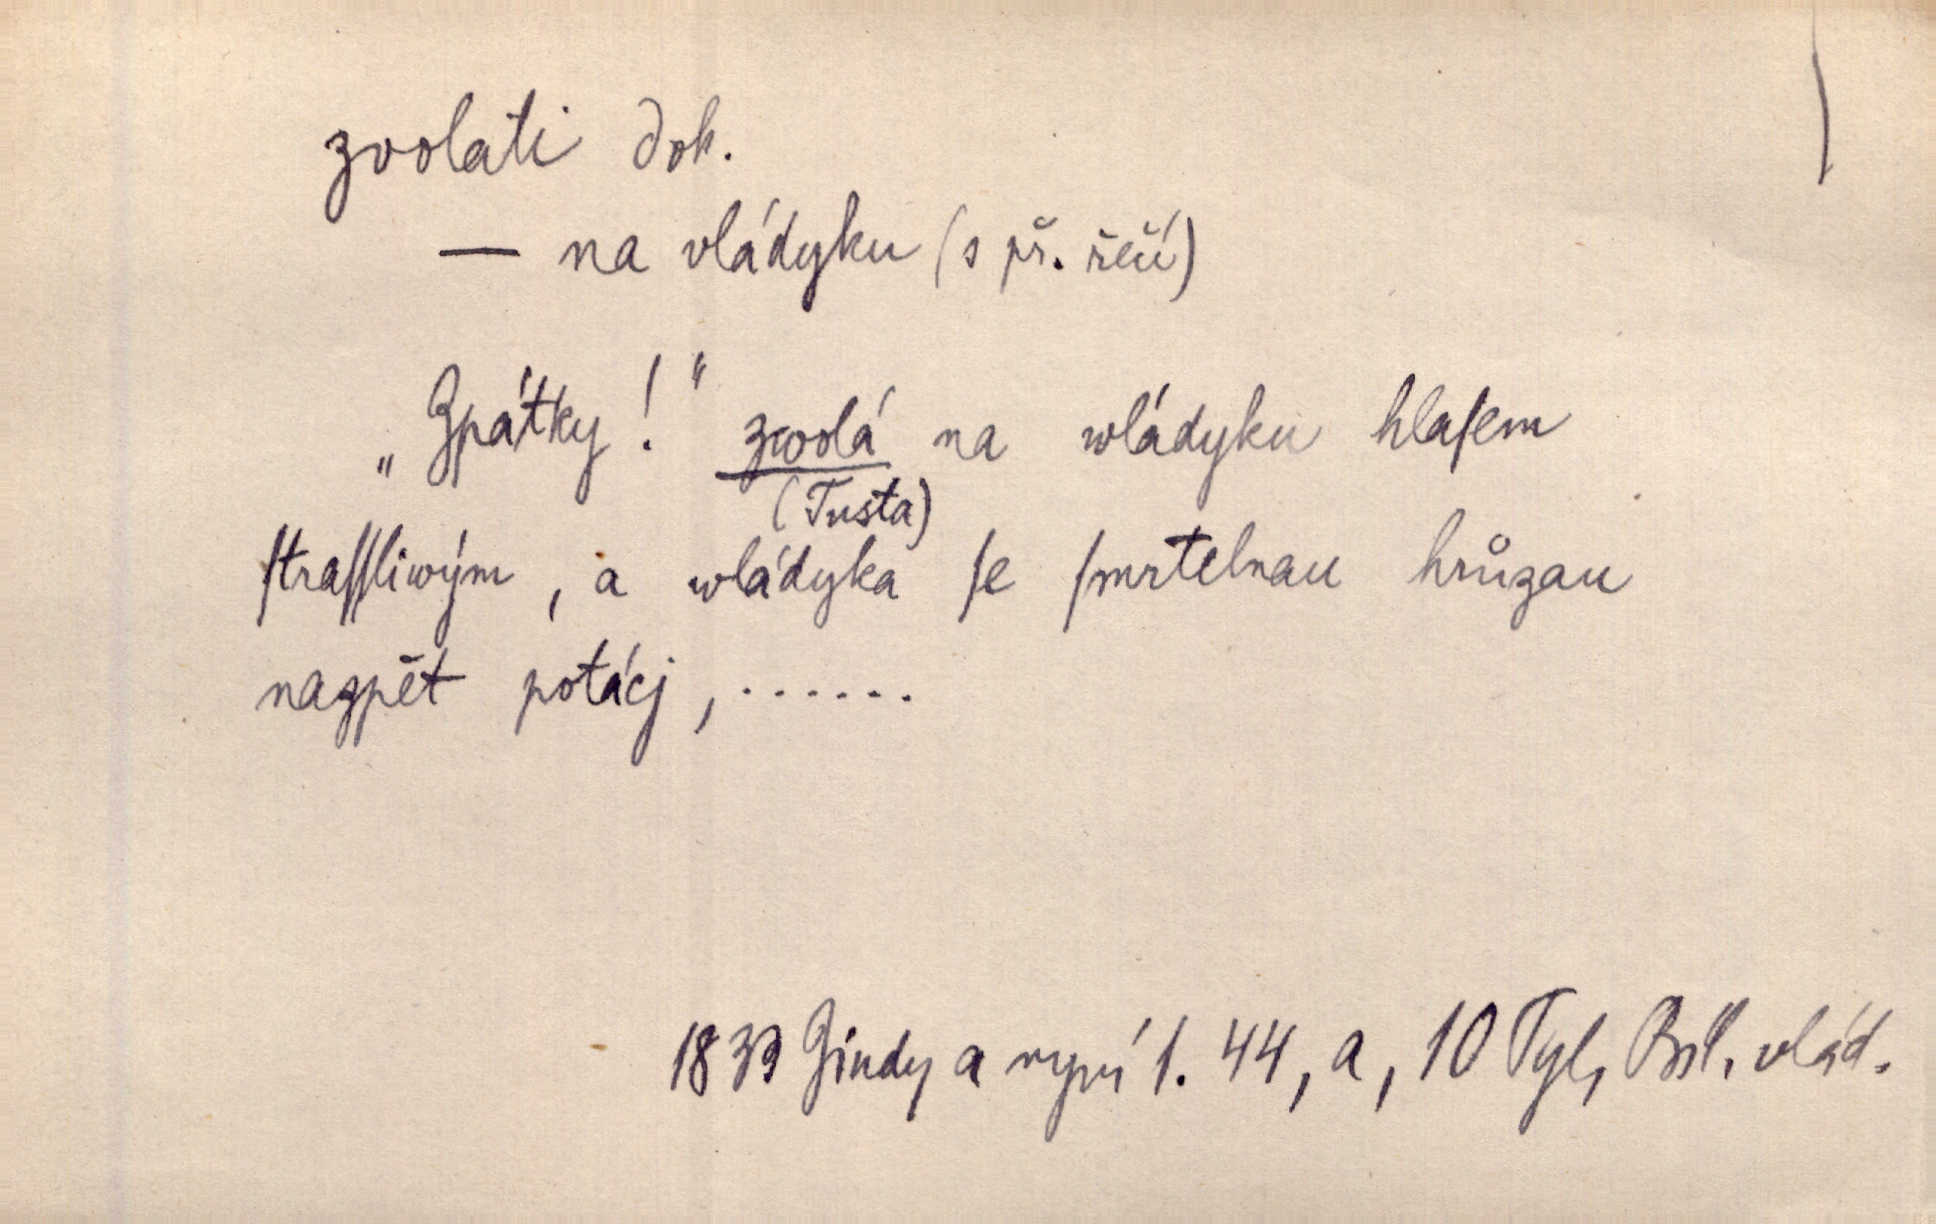 zvolati dok.
— na vládyku (s př. řečí)
„Zpátky!" zwolá na wládyku hlaſem
(Tusta)
ſtraſſliwým, a wládyka ſe ſmrtelnau hrůzau
nazpět potácj, ......
1833 Gindy a nyní 1. 44, a, 10 Tyl, vlád.